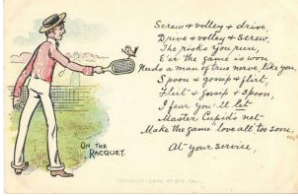 Screw & volley & drive,
Drive & volley & screw,
The risks you run,
E'er the game is won
Needs a man of true nerve like you
Spoon & gossip & flirt,
Flirt & gossip & spoon,
I fear you'll let
Master Cupid's net
Make the game "love all" too soon.
At your service,
ON THE
RACQUET.
COPYRIGHT